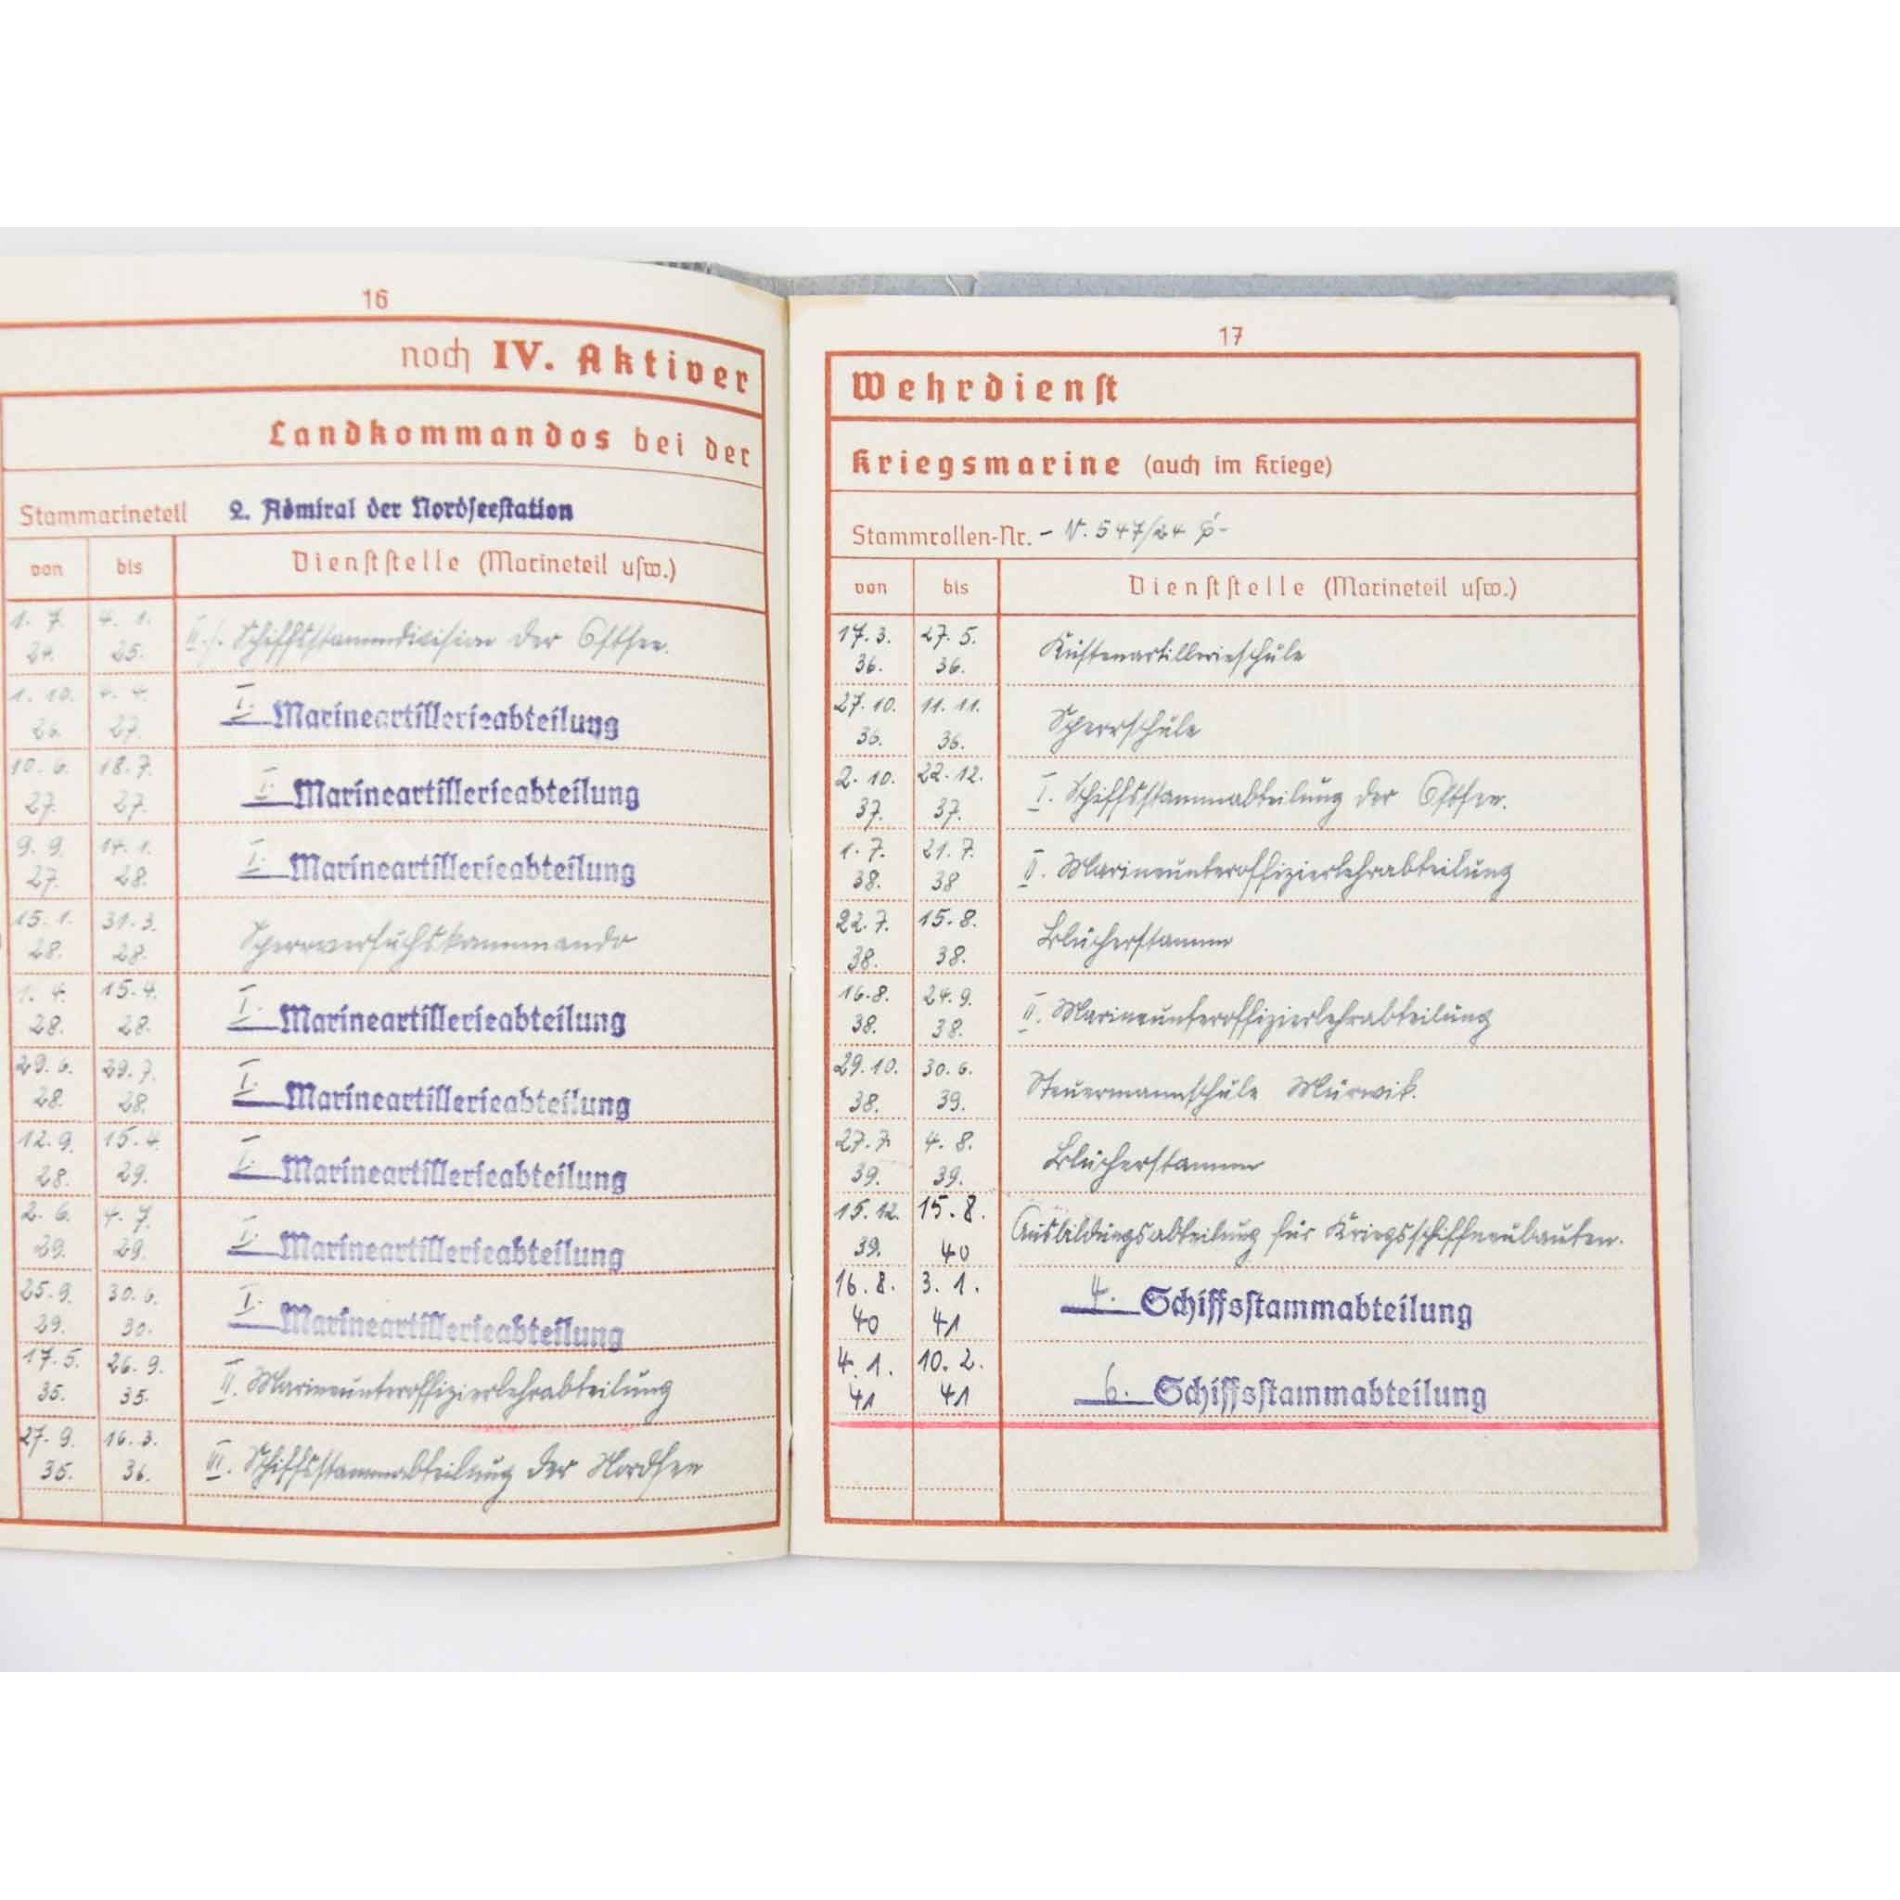 16
noch IV. Aktiver
Landkommandos bei der
Stammarineteil 2. Admiral der Nordseestation
von bis Dienststelle (Marineteil usw.)
1. 7. 4. 1.
24. 25. Schiffsstammdivision der Ostsee.
1. 10. 4. 4. I.
26. 27. Marineartillerieabteilung
10. 6. 18. 7. I.
27. 27. Marineartillerieabteilung
9. 9. 14. 1. I.
27. 28. Marineartillerieabteilung
15. 1. 31. 3.
28. 28. Sperrversuchskommando
1. 4. 15. 4. I.
28. 28. Marineartillerieabteilung
29. 6. 29. 7. I.
28. 28. Marineartillerieabteilung
12. 9. 15. 4. I.
28. 29. Marineartillerieabteilung
2. 6. 4. 7. I.
29. 29. Marineartillerieabteilung
25. 9. 30. 6. I.
29. 30. Marineartillerieabteilung
17. 5. 26. 9.
35. 35. II. Marineunteroffizierlehrabteilung
27. 9. 16. 3.
35. 36. III. Schiffsstammabteilung der Nordsee
17
Wehrdienst
Kriegsmarine (auch im Kriege)
Stammrollen-Nr. - N. 547/24
von bis Dienststelle (Marineteil usw.)
17. 3. 27. 5.
36. 36. Küstenartillerieschule
27. 10. 11. 11.
36. 36. Sperrschule
2. 10. 22. 12.
37. 37. I. Schiffsstammabteilung der Ostsee.
1. 7. 21. 7.
38. 38 II. Marineunteroffizierlehrabteilung
22. 7. 15. 8.
38. 38. Blücherstamm
16. 8. 24. 9.
38. 38. II. Marineunteroffizierlehrabteilung
29. 10. 30. 6.
38. 39. Steuermannschule Mürwik.
27. 7. 4. 8.
39. 39. Blücherstamm
15. 12. 15. 8.
39. 40 Ausbildungsabteilung für Kriegsschiffneubauten.
16. 8. 3. 1.
40 41 4. Schiffsstammabteilung
4. 1. 10. 2.
41 41 6. Schiffsstammabteilung